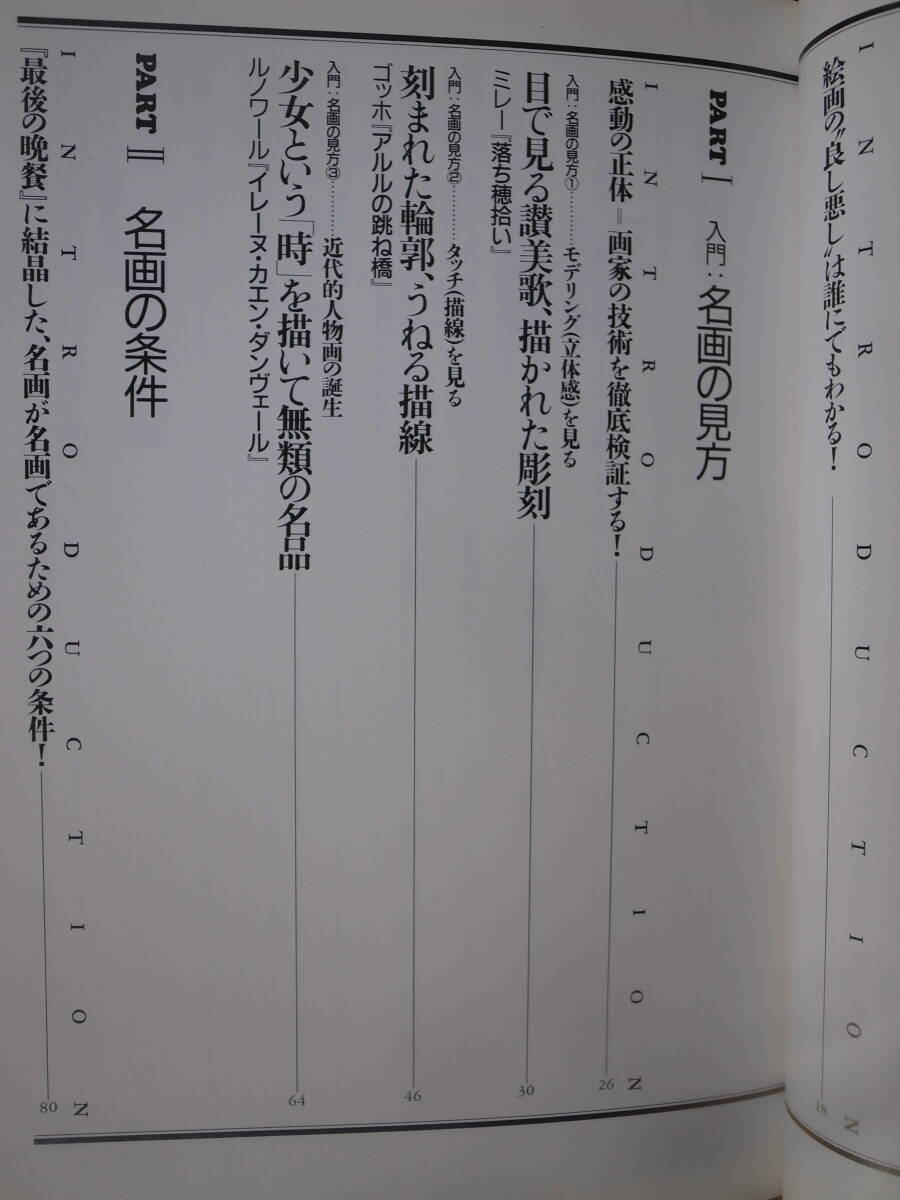 INTRODUCTION
絵画の〝良し悪し〟は誰にでもわかる！ 18
PART I 入門：名画の見方
INTRODUCTION
感動の正体＝画家の技術を徹底検証する！ 26
入門：名画の見方①…………モデリング（立体感）を見る
目で見る讃美歌、描かれた彫刻 30
ミレー『落ち穂拾い』
入門：名画の見方②…………タッチ（描線）を見る
刻まれた輪郭、うねる描線 46
ゴッホ『アルルの跳ね橋』
入門：名画の見方③…………近代的人物画の誕生
少女という「時」を描いて無類の名品 64
ルノワール『イレーヌ・カエン・ダンヴェール』
PART II 名画の条件
INTRODUCTION
『最後の晩餐』に結晶した、名画が名画であるための六つの条件！ 80